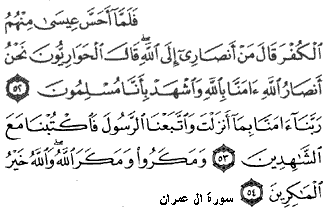 فَلَمَّآ أَحَسَّ عِيسَىٰ مِنْهُمُ
ٱلْكُفْرَ قَالَ مَنْ أَنصَارِىٓ إِلَى ٱللَّهِ ۖ قَالَ ٱلْحَوَارِيُّونَ نَحْنُ
أَنصَارُ ٱللَّهِ ءَامَنَّا بِٱللَّهِ وَٱشْهَدْ بِأَنَّا مُسْلِمُونَ ٥٢
رَبَّنَآ ءَامَنَّا بِمَآ أَنزَلْتَ وَٱتَّبَعْنَا ٱلرَّسُولَ فَٱكْتُبْنَا مَعَ
ٱلشَّٰهِدِينَ ٥٣ وَمَكَرُوا۟ وَمَكَرَ ٱللَّهُ ۖ وَٱللَّهُ خَيْرُ
ٱلْمَٰكِرِينَ ٥٤
سورة ال عمران